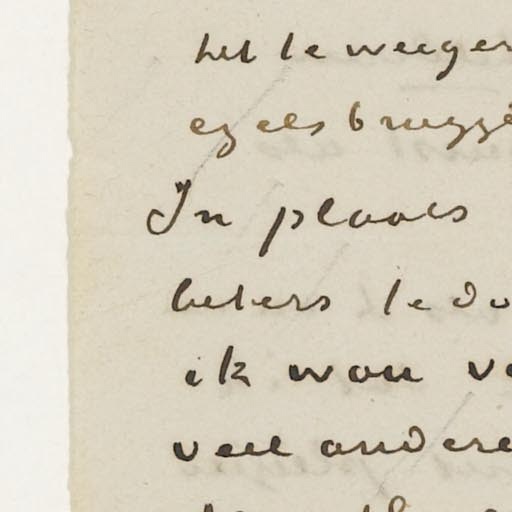 het te weeger
ezelsbrugge
In plaats
beters te do
ik wou ve
veel andere